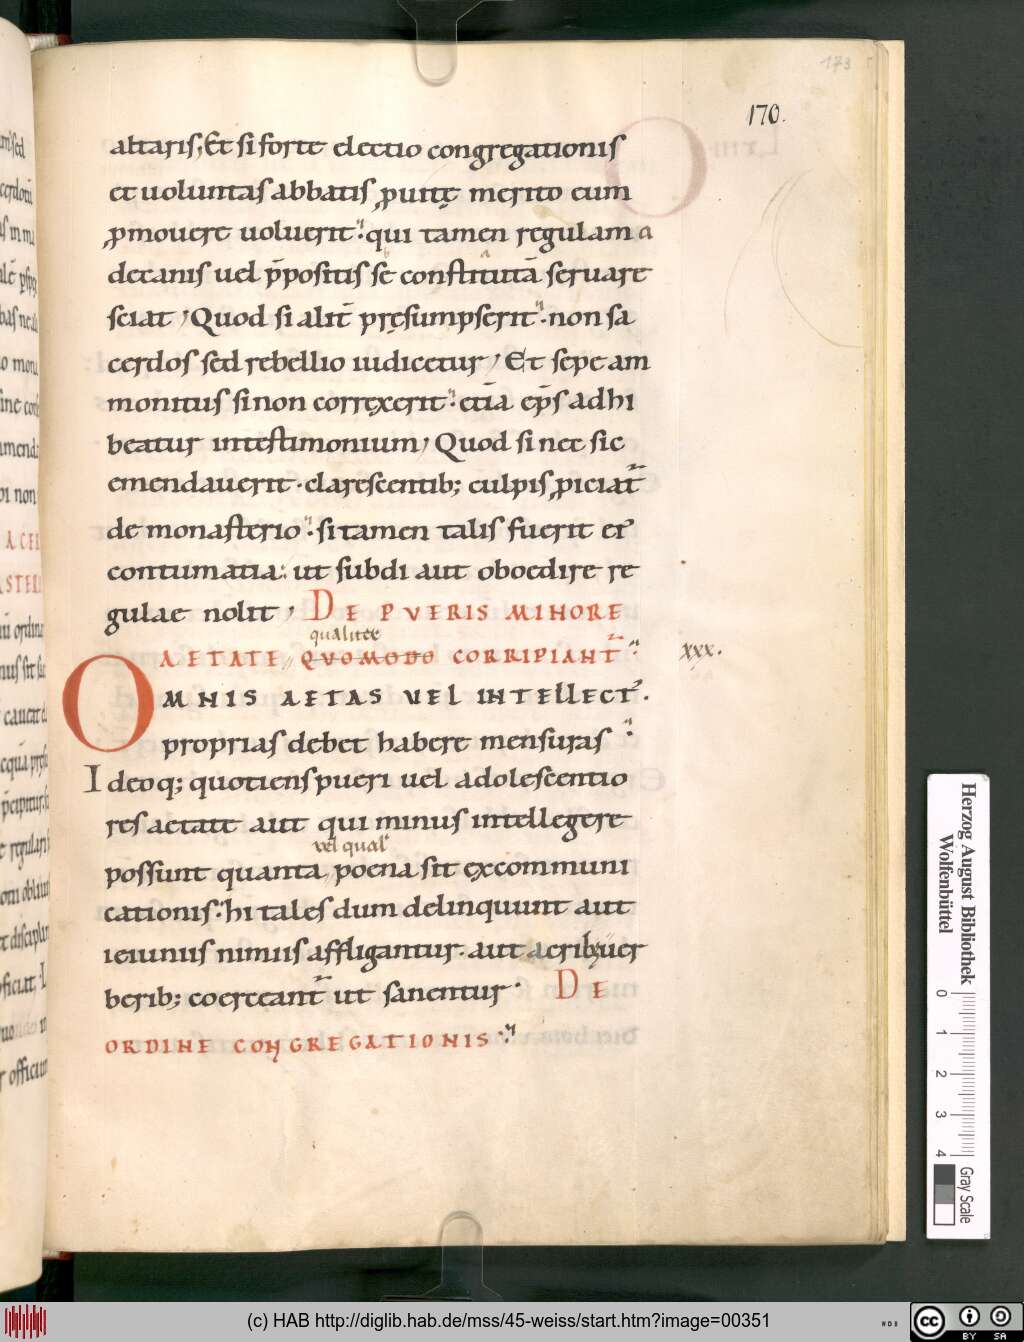 173
170.
altaris; Et si forte electio congregationis
et uoluntas abbatis, ꝓ uitę merito eum
ꝓmouere uoluerit: qui tamen regulam a
decanis uel p̄positis se constitutā seruare
sciat, Quod si alit̄ pręsumpserit: non sa
cerdos sed rebellio iudicetur, Et sepe am
monitus si non correxerit: etiā ep̄s adhi
beatur intestimonium, Quod si nec sic
emendauerit. clarescentib; culpis, ꝓiciat̄
de monasterio: si tamen talis fuerit ei'
contumatia: ut subdi aut oboedire re
gulae nolit, DE PVERIS MINORE
qualiter
AETATE, QVOMODO CORRIPIANT̄: xxx.
OMNIS AETAS VEL INTELLECT'.
proprias debet habere mensuras:
Ideoq; quotiens pueri uel adolescentio
res aetate aut qui minus intellegere
vel qual
possunt quanta, poena sit excommuni
cationis. hi tales dum delinquunt aut
ieiuniis nimiis affligantur. aut acrib; uer
berib; coerceant̄ ut sanentur. DE
ORDINE CONGREGATIONIS:
Herzog August Bibliothek
Wolfenbüttel
0 1 2 3 4
Gray Scale
(c) HAB http://diglib.hab.de/mss/45-weiss/start.htm?image=00351
WDB
cc BY SA